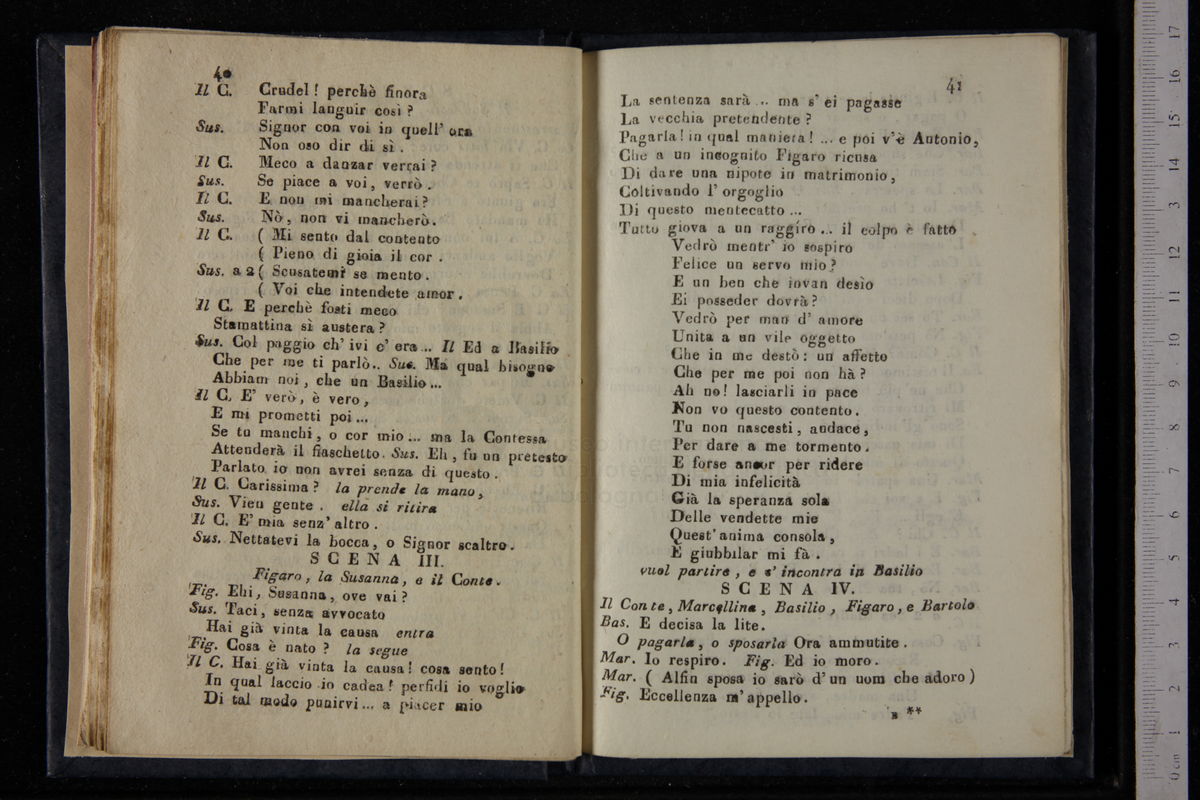 40
Il C. Crudel! perchè finora
Farmi languir così?
Sus. Signor con voi in quell' ora
Non oso dir di sì.
Il C. Meco a danzar verrai?
Sus. Se piace a voi, verrò.
Il C. E non mi mancherai?
Sus. Nò, non vi mancherò.
Il C. ( Mi sento dal contento
( Pieno di gioia il cor.
Sus. a 2 ( Scusatemi se mento.
( Voi che intendete amor.
Il C. E perchè fosti meco
Stamattina sì austera?
Sus. Col paggio ch' ivi c' era... Il Ed a Basilio
Che per me ti parlò.. Sus. Ma qual bisogno
Abbiam noi, che un Basilio...
Il C. E' verò, è vero,
E mi prometti poi...
Se tu manchi, o cor mio... ma la Contessa
Attenderà il fiaschetto. Sus. Eh, fu un pretesto
Parlato io non avrei senza di questo.
Il C. Carissima? la prende la mano,
Sus. Vien gente. ella si ritira
Il C. E' mia senz' altro.
Sus. Nettatevi la bocca, o Signor scaltro.
SCENA III.
Figaro, la Susanna, e il Conte.
Fig. Ehi, Susanna, ove vai?
Sus. Taci, senza avvocato
Hai già vinta la causa entra
Fig. Cosa è nato? la segue
Il C. Hai già vinta la causa! cosa sento!
In qual laccio io cadea! perfidi io voglio
Di tal modo punirvi... a piacer mio
41
La sentenza sarà... ma s' ei pagasse
La vecchia pretendente?
Pagarla! in qual maniera! ... e poi v'è Antonio,
Che a un incognito Figaro ricusa
Di dare una nipote in matrimonio,
Coltivando l' orgoglio
Di questo mentecatto...
Tutto giova a un raggiro... il colpo è fatto
Vedrò mentr' io sospiro
Felice un servo mio?
E un ben che iovan desìo
Ei posseder dovrà?
Vedrò per man d' amore
Unita a un vile oggetto
Che in me destò: un affetto
Che per me poi non hà?
Ah no! lasciarli in pace
Non vo questo contento.
Tu non nascesti, audace,
Per dare a me tormento.
E forse ancor per ridere
Di mia infelicità
Già la speranza sola
Delle vendette mie
Quest' anima consola,
E giubbilar mi fà.
vuol partire, e s' incontra in Basilio
SCENA IV.
Il Conte, Marcellina, Basilio, Figaro, e Bartolo
Bas. E decisa la lite.
O pagarla, o sposarla Ora ammutite.
Mar. Io respiro. Fig. Ed io moro.
Mar. ( Alfin sposa io sarò d' un uom che adoro )
Fig. Eccellenza m' appello.
B **